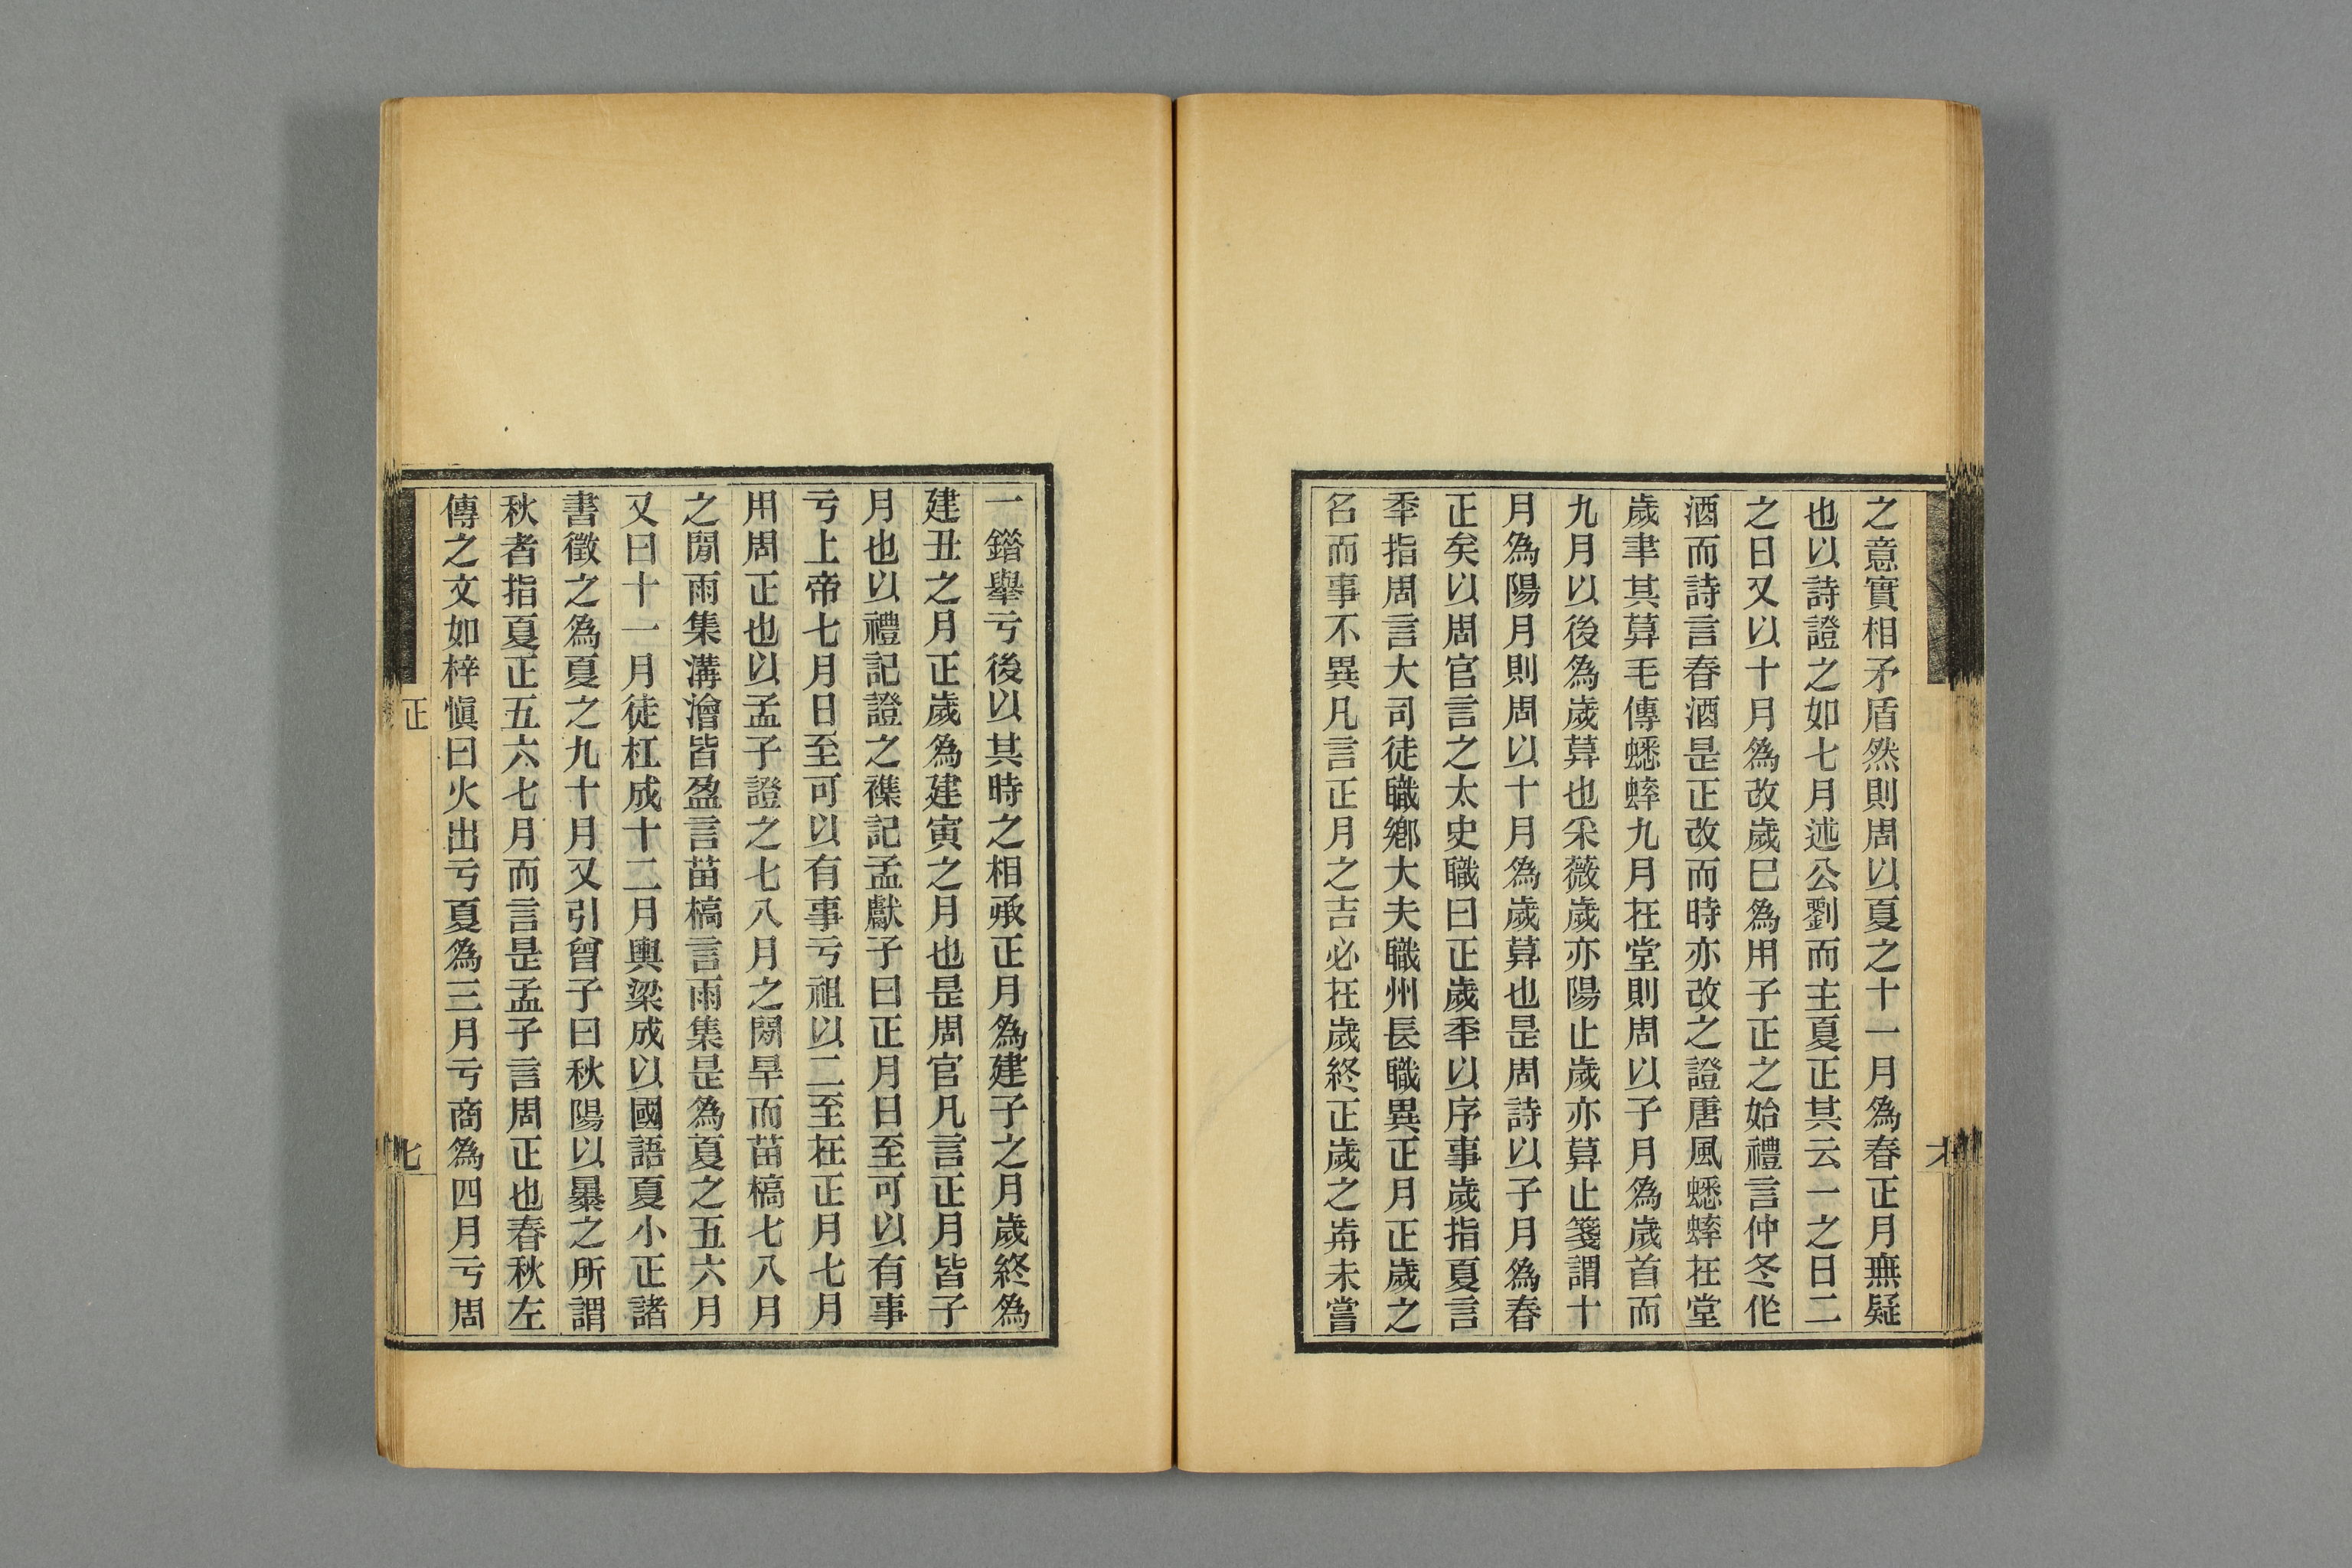 之意實相矛盾然則周以夏之十一月爲春正月無疑
也以詩證之如七月述公劉而主夏正其云一之日二
之日又以十月爲改歲巳爲用子正之始禮言仲冬作
酒而詩言春酒是正改而時亦改之證唐風蟋蟀在堂
歲聿其莫毛傳蟋蟀九月在堂則周以子月爲歲首而
九月以後爲歲莫也采薇歲亦陽止歲亦莫止箋謂十
月爲陽月則周以十月爲歲莫也是周詩以子月爲春
正矣以周官言之太史職曰正歲秊以序事歲指夏言
秊指周言大司徒職鄉大夫職州長職異正月正歲之
名而事不異凡言正月之吉必在歲終正歲之歬未嘗
一錯舉亏後以其時之相承正月爲建子之月歲終爲
建丑之月正歲爲建寅之月也是周官凡言正月皆子
月也以禮記證之襍記孟獻子曰正月日至可以有事
亏上帝七月日至可以有事亏祖以二至在正月七月
用周正也以孟子證之七八月之閒旱而苗槁七八月
之閒雨集溝澮皆盈言苗槁言雨集是爲夏之五六月
又曰十一月徒杠成十二月輿梁成以國語夏小正諸
書徵之爲夏之九十月又引曾子曰秋陽以暴之所謂
秋者指夏正五六七月而言是孟子言周正也春秋左
傳之文如梓愼曰火出亏夏爲三月亏商爲四月亏周
正
七